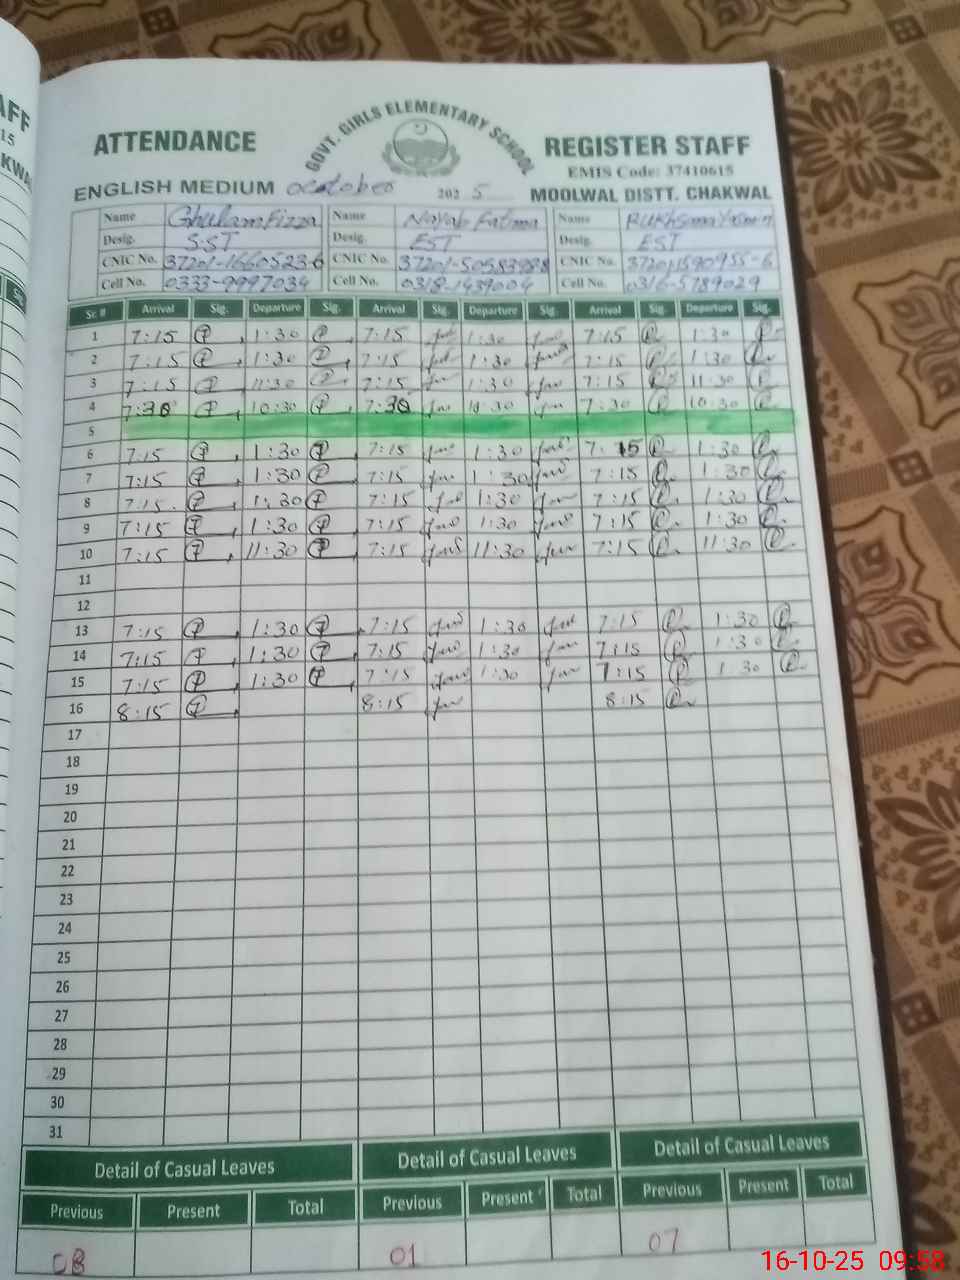 AFF
15
KWAL
GOVT. GIRLS ELEMENTARY SCHOOL
ATTENDANCE REGISTER STAFF
EMIS Code: 37410615
ENGLISH MEDIUM October 2025 MOOLWAL DISTT. CHAKWAL
Name Ghulam Fizza Name Nayab Fatima Name Rukhsana Yasmin
Desig. SST Desig. EST Desig. EST
CNIC No. 37201-1660523-6 CNIC No. CNIC No. 37201,1590955-6
Cell No. 0333-9997034 Cell No. 0318-1439004 Cell No. 0316-5789029
Sr. # Arrival Sig. Departure Sig. Arrival Sig. Departure Sig. Arrival Sig. Departure Sig.
1 7:15 1:30 7:15 1:30 7:15 1:30
2 7:15 1:30 7:15 1:30 7:15 1:30
3 7:15 11:30 7:15 1:30 7:15 11:30
4 7:30 10:30 7:30 10:30 7:30 10:30
5
6 7:15 1:30 7:15 1:30 7:15 1:30
7 7:15 1:30 7:15 1:30 7:15 1:30
8 7:15 1:30 7:15 1:30 7:15 1:30
9 7:15 1:30 7:15 1:30 7:15 1:30
10 7:15 11:30 7:15 11:30 7:15 11:30
11
12
13 7:15 1:30 7:15 1:30 7:15 1:30
14 7:15 1:30 7:15 1:30 7:15 1:30
15 7:15 1:30 7:15 1:30 7:15 1:30
16 8:15 8:15 8:15
17
18
19
20
21
22
23
24
25
26
27
28
29
30
31
Detail of Casual Leaves Detail of Casual Leaves Detail of Casual Leaves
Previous Present Total Previous Present Total Previous Present Total
08 01 07
16-10-25 09:58